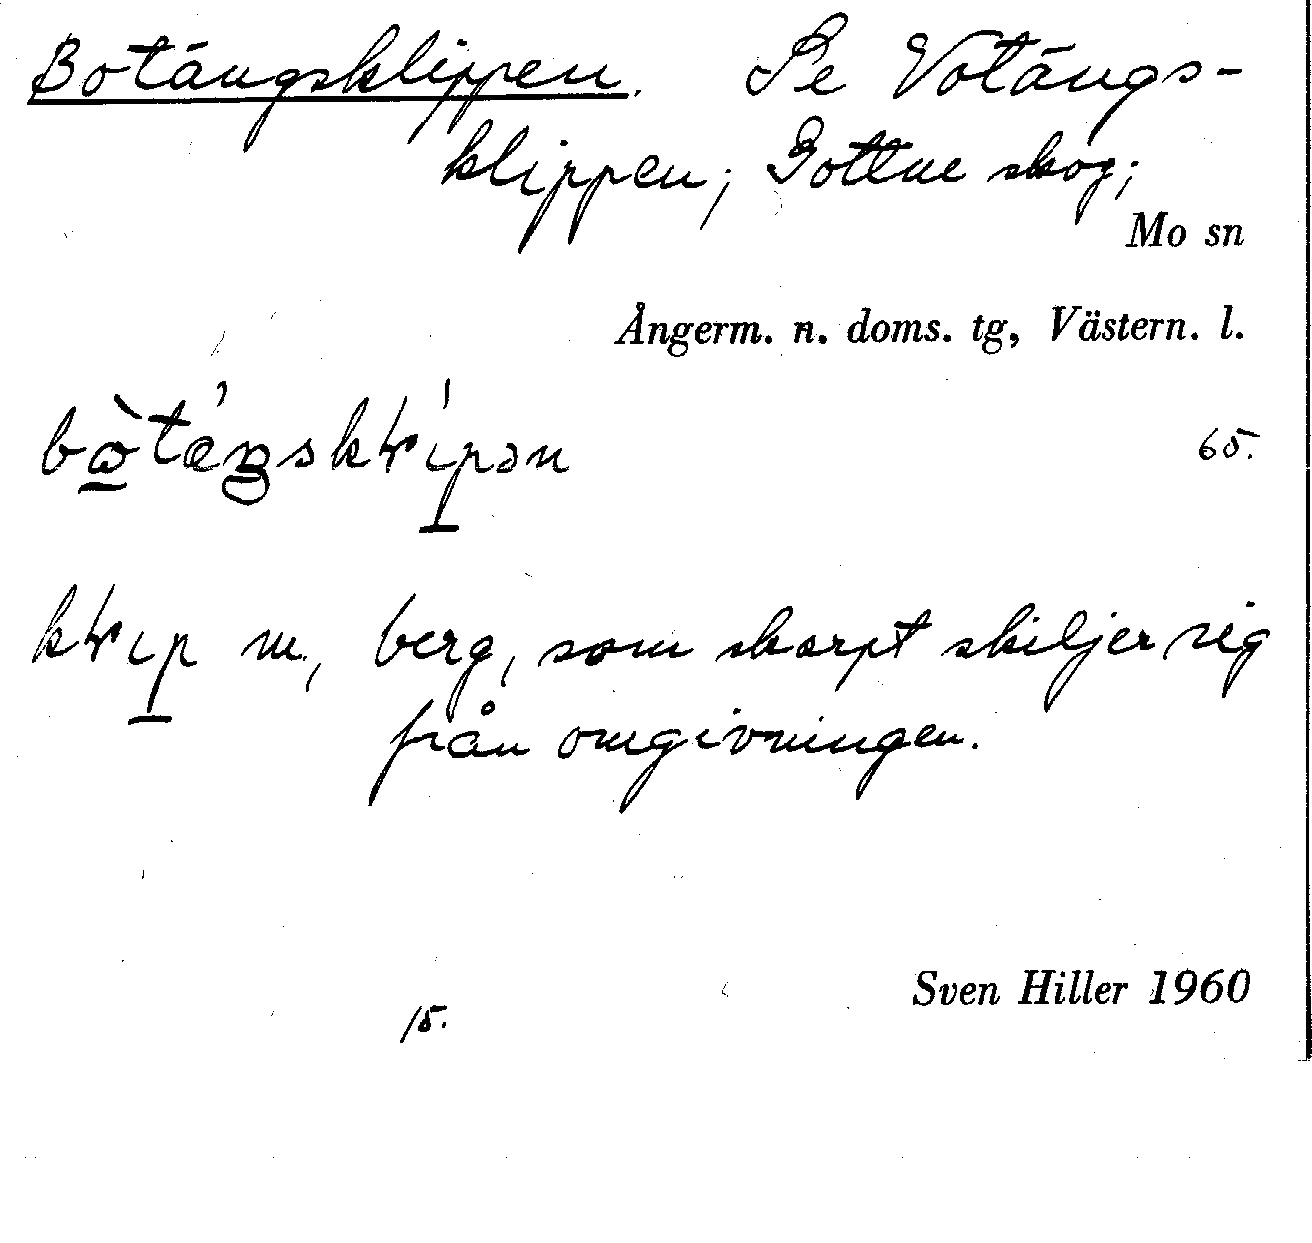 Botängsklippen. Se Votängs-
klippen; Gottne skog;
Mo sn
Ångerm. n. doms. tg, Västern. l.
65.
m, berg, som skarpt skiljer sig
från omgivningen.
Sven Hiller 1960
15.